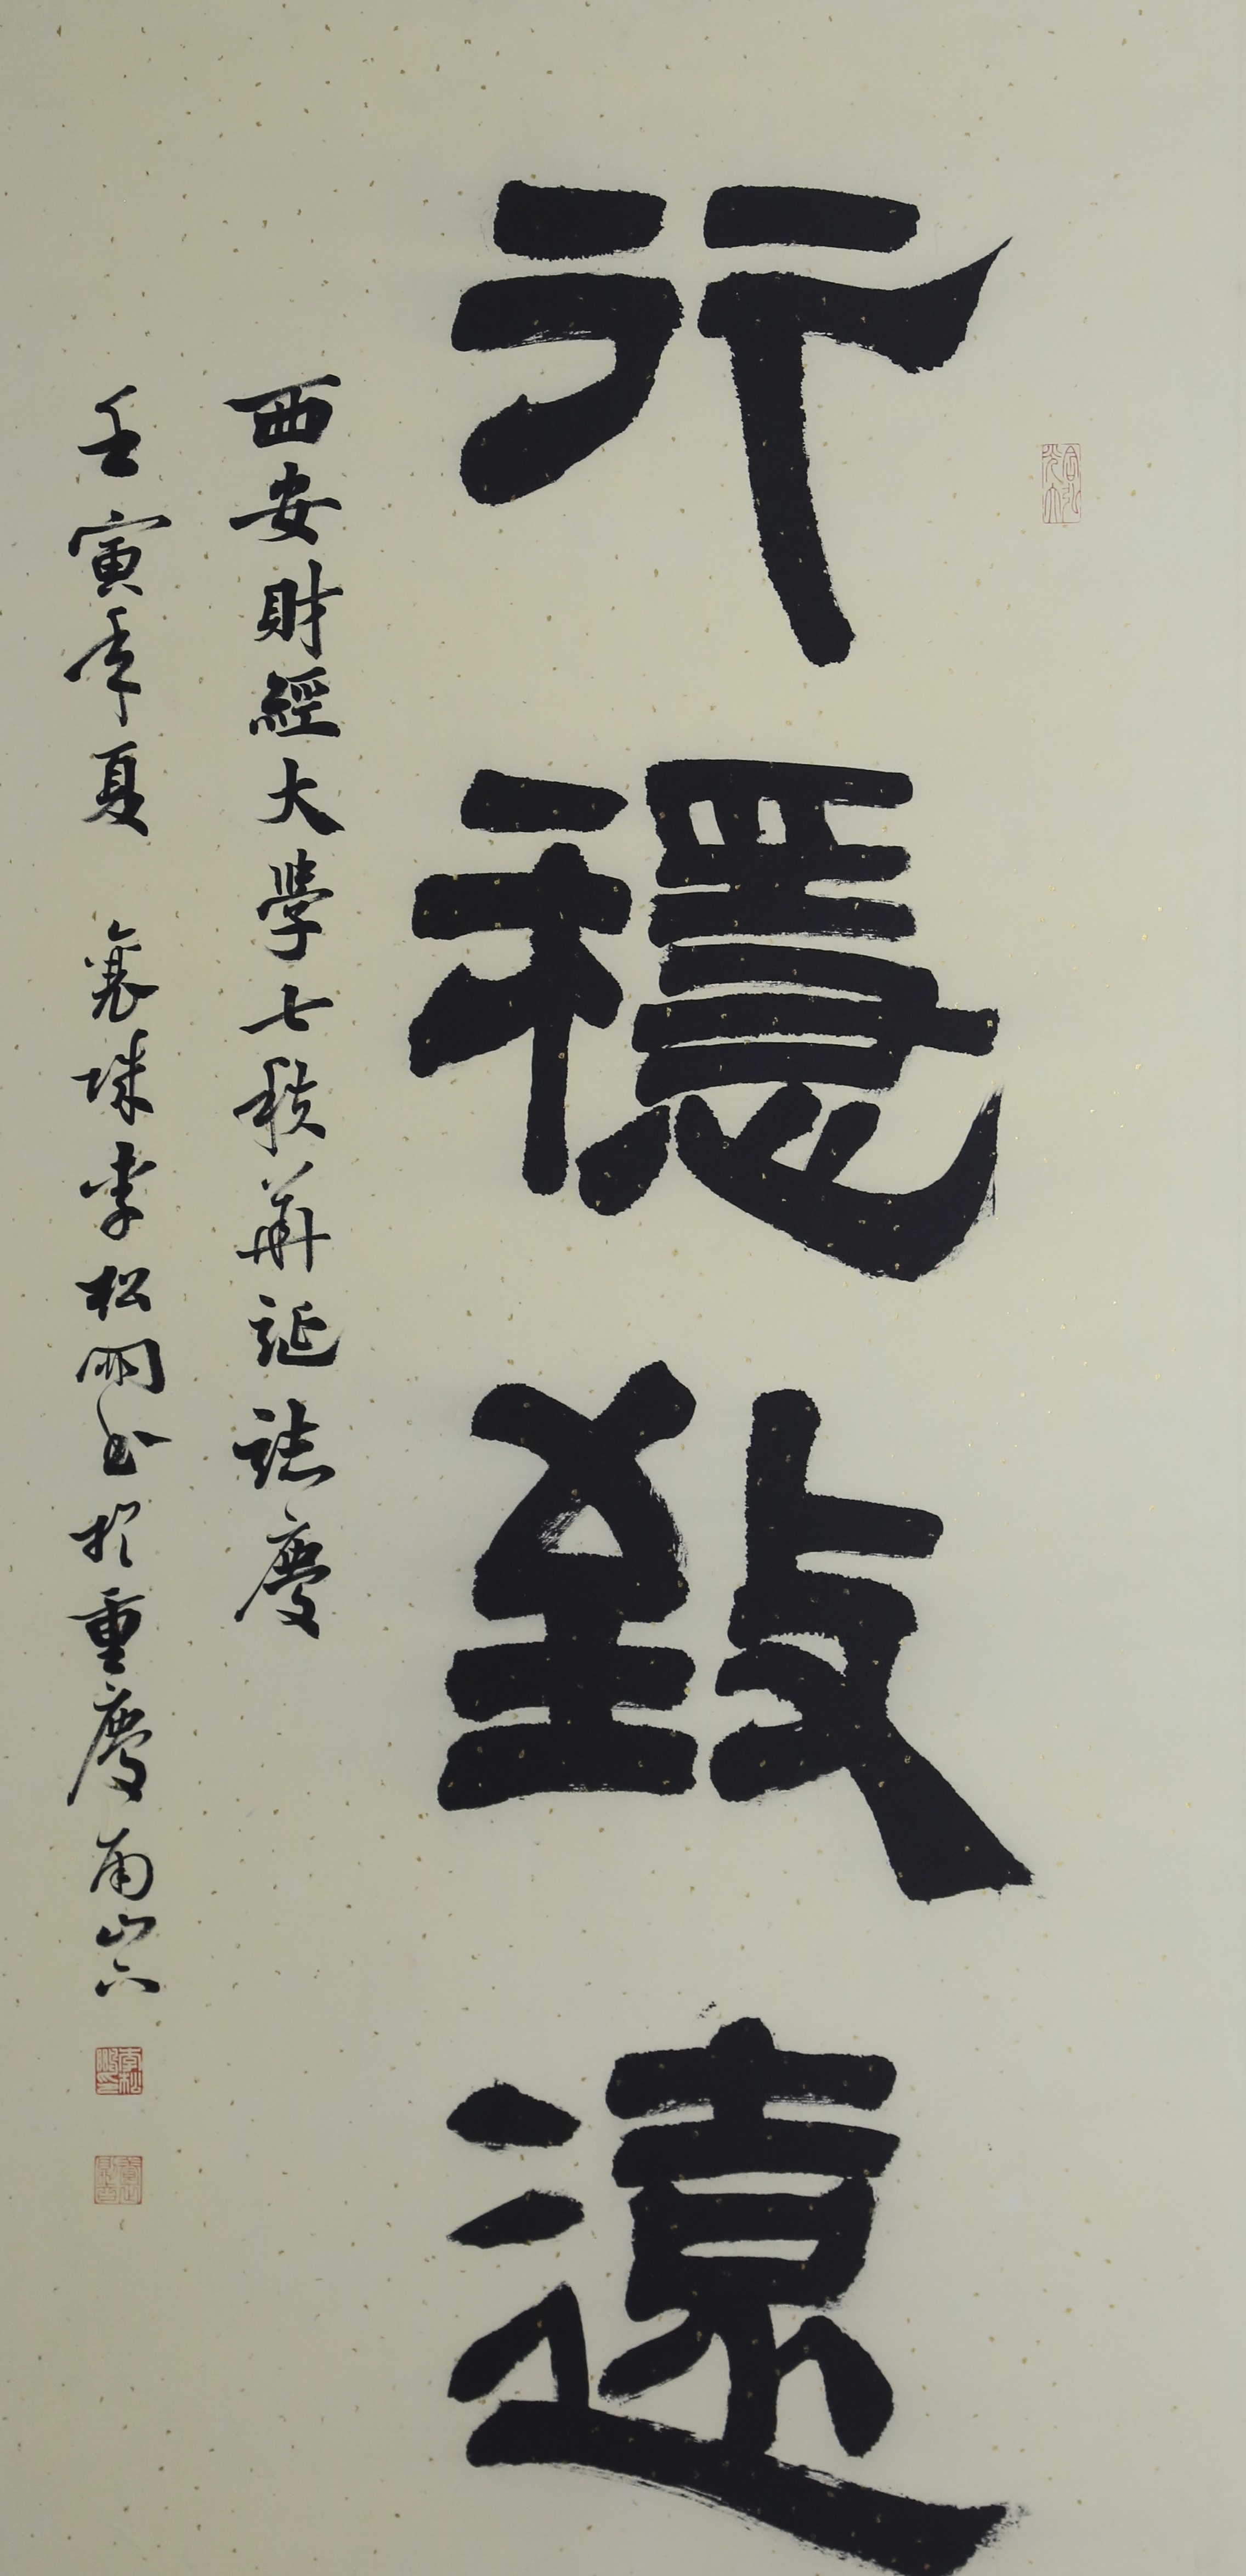 行穩致遠
西安財經大學七秩華誕誌慶
壬寅年夏 襄城李松朋書於重慶南山